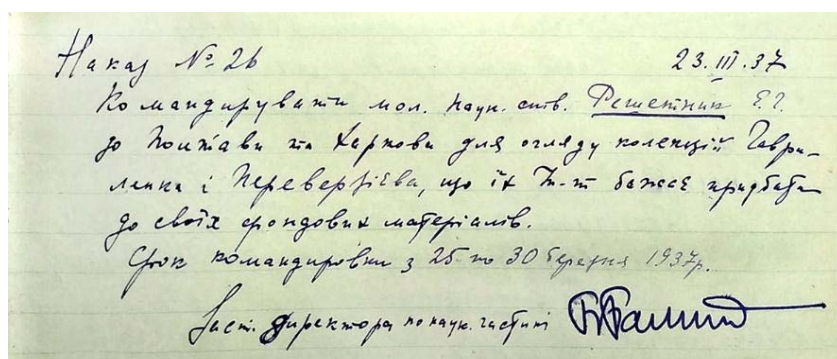 Наказ № 26 23.III.37
Командирувати мол. наук. співр. Решетник Є.Г.
до Полтави та Харкова для огляду колекцій Гаври-
ленка і Переверзієва, що їх Ін-т бажає придбати
до своїх фондових матеріалів.
Срок командировки з 25 по 30 березня 1937р.
Заст. директора по наук. частині